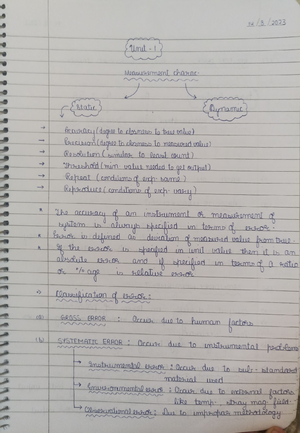 21/8/2023
Unit - 1
Measurement Charac
Static
Dynamic
→ Accuracy (degree to closeness to true value)
→ Precision (degree to closeness to measured value)
→ Resolution (similar to least count)
→ Threshold (min. value needed to get output)
→ Repeat (conditions of exp same)
→ Reproduce (conditions of exp vary)
* The accuracy of an instrument or measurement of
system is always specified in terms of error.
* Error is defined as deviation of measured value from true.
* If the error is specified in unit value then it is an
absolute error and if specified in terms of a ratio
or %age is relative error
Classification of error:
GROSS ERROR : Occur due to human factors
SYSTEMATIC ERROR : Occur due to instrumental problems
→ Instrumental error : Occur due to sub-standard
material used
→ Environmental error : Occur due to external factors
like temp, stray mag field
→ Observational error : Due to improper methodology